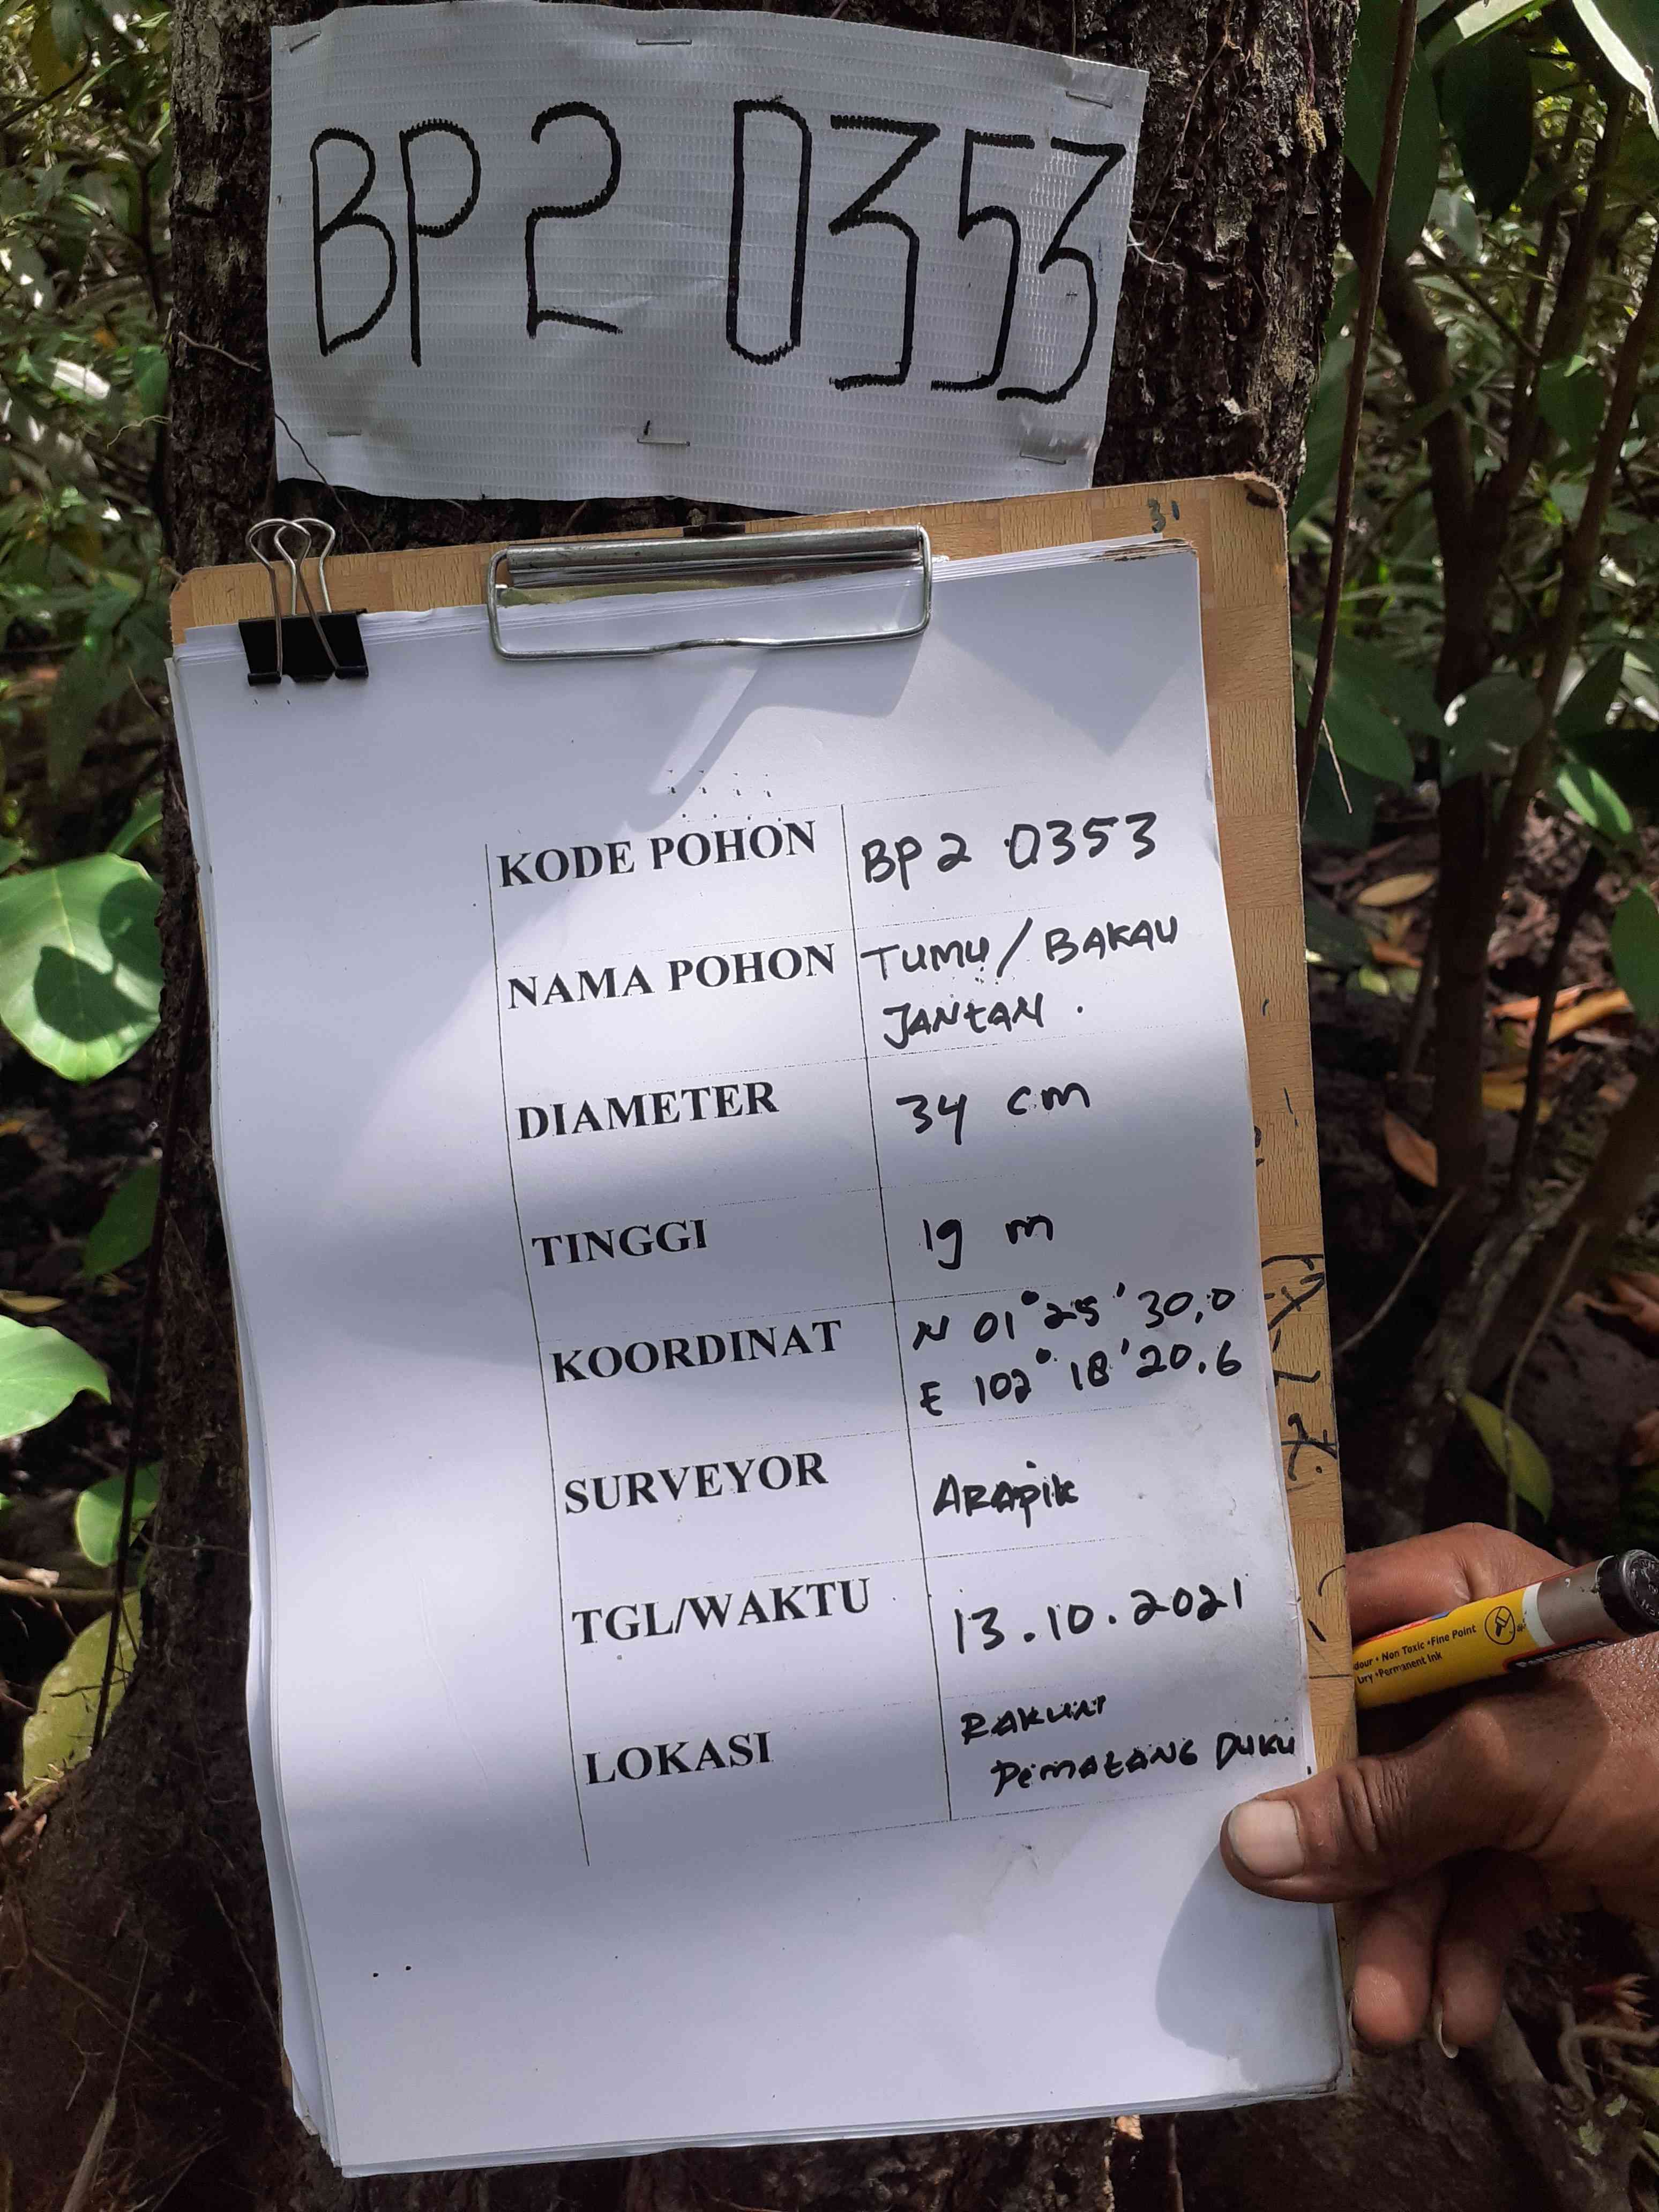 BP 2 0353
31
KODE POHON BP 2 0353
NAMA POHON TUMU / BAKAU
JANtAN .
DIAMETER 34 cm
TINGGI 19 m
KOORDINAT N 01° 25' 30,0
E 102° 18' 20.6
SURVEYOR ARApik
TGL/WAKTU 13.10.2021
LOKASI
PEMAtANG DUKU
dour • Non Toxic • Fine Point
ury • Permanent Ink